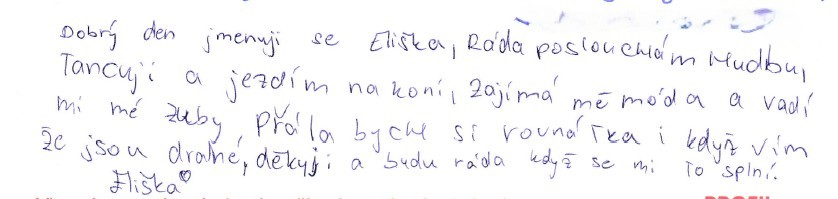 Dobrý den jmenuji se Eliška, Ráda poslouchám Hudbu,
Tancuji a jezdím na koni, Zajímá mě móda a vadí
mi mé zuby. Přála bych si rovnátka i když vím
že jsou drahé, děkuji a budu ráda když se mi to splní.
Eliška